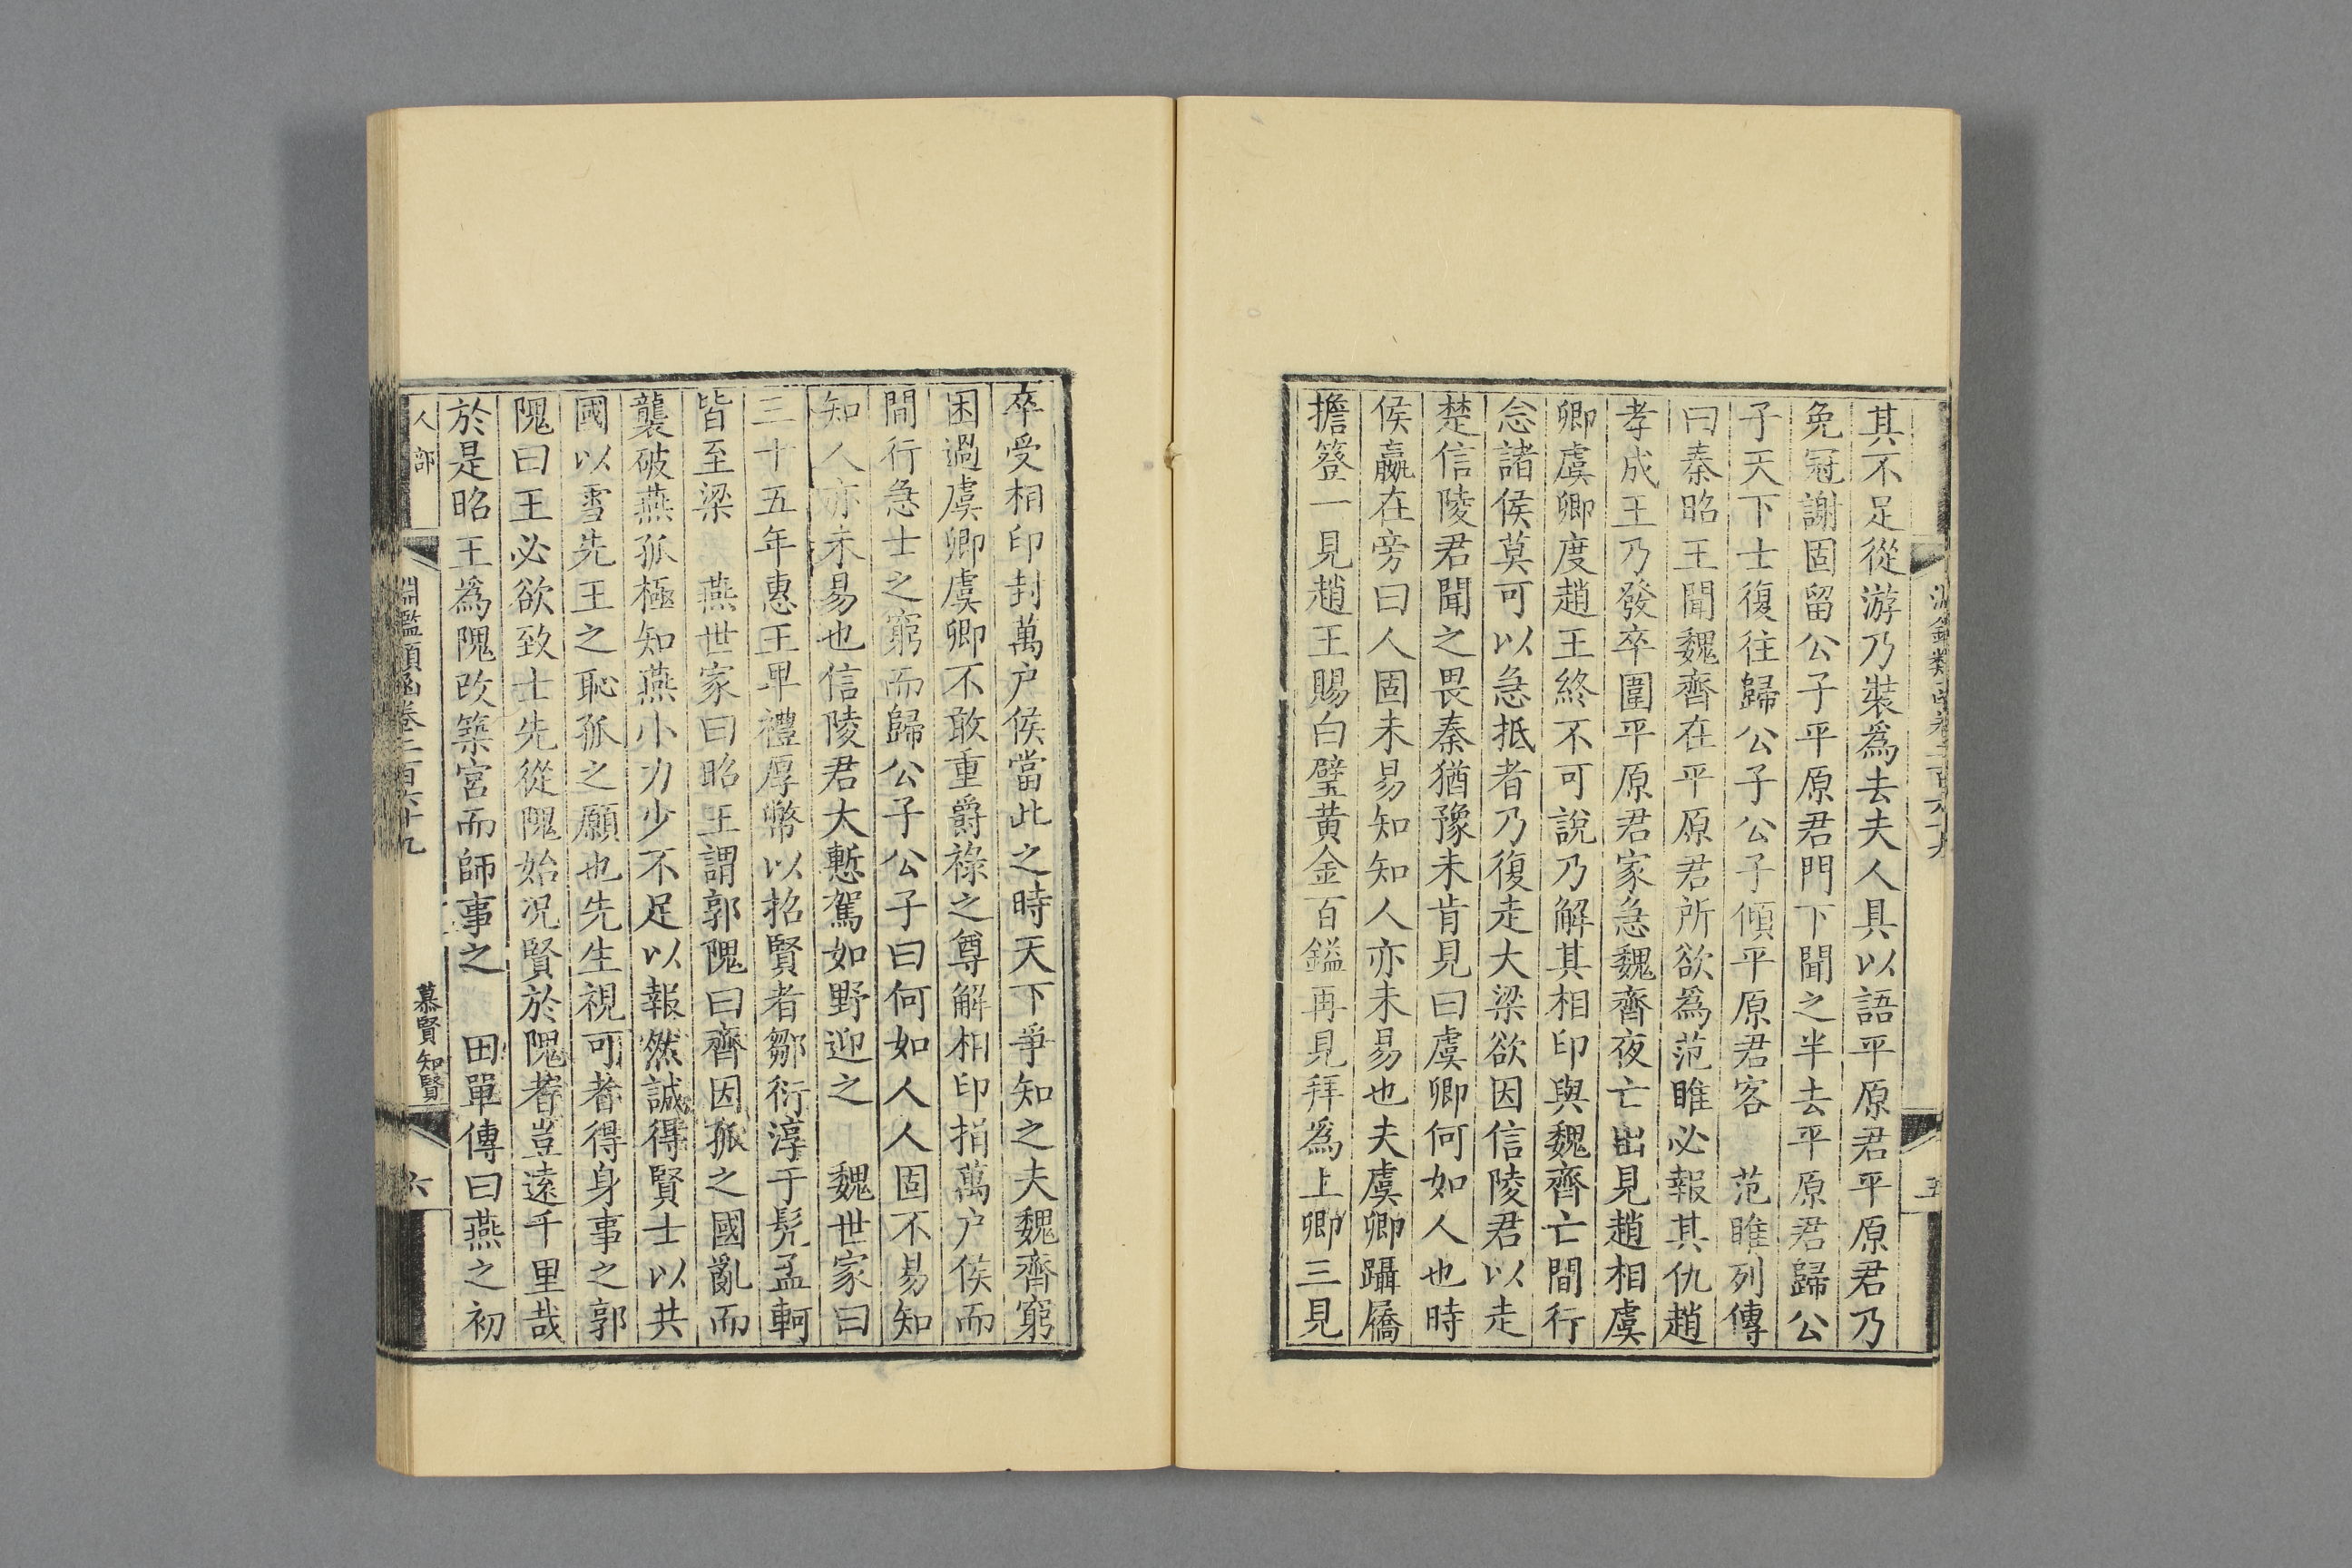 其不足從游乃裝爲去夫人具以語平原君平原君乃
免冠謝固留公子平原君門下聞之半去平原君歸公
子天下士復往歸公子公子傾平原君客　范睢列傳
曰秦昭王聞魏齊在平原君所欲爲范睢必報其仇趙
孝成王乃發卒圍平原君家急魏齊夜亡出見趙相虞
卿虞卿度趙王終不可說乃解其相印與魏齊亡間行
念諸侯莫可以急抵者乃復走大梁欲因信陵君以走
楚信陵君聞之畏秦猶豫未肯見曰虞卿何如人也時
侯嬴在旁曰人固未易知知人亦未易也夫虞卿躡屩
擔簦一見趙王賜白璧黃金百鎰再見拜爲上卿三見
五
卒受相印封萬户侯當此之時天下爭知之夫魏齊窮
困過虞卿虞卿不敢重爵祿之尊解相印捐萬户侯而
間行急士之窮而歸公子公子曰何如人人固不易知
知人亦未易也信陵君大慙駕如野迎之　魏世家曰
三十五年惠王卑禮厚幣以招賢者鄒衍淳于髡孟軻
皆至梁　燕世家曰昭王謂郭隗曰齊因孤之國亂而
襲破燕孤極知燕小力少不足以報然誠得賢士以共
國以雪先王之恥孤之願也先生視可者得身事之郭
隗曰王必欲致士先從隗始况賢於隗者豈遠千里哉
於是昭王爲隗改築宮而師事之　田單傳曰燕之初
人部　淵鑑類函卷二百六十九　慕賢知賢　六